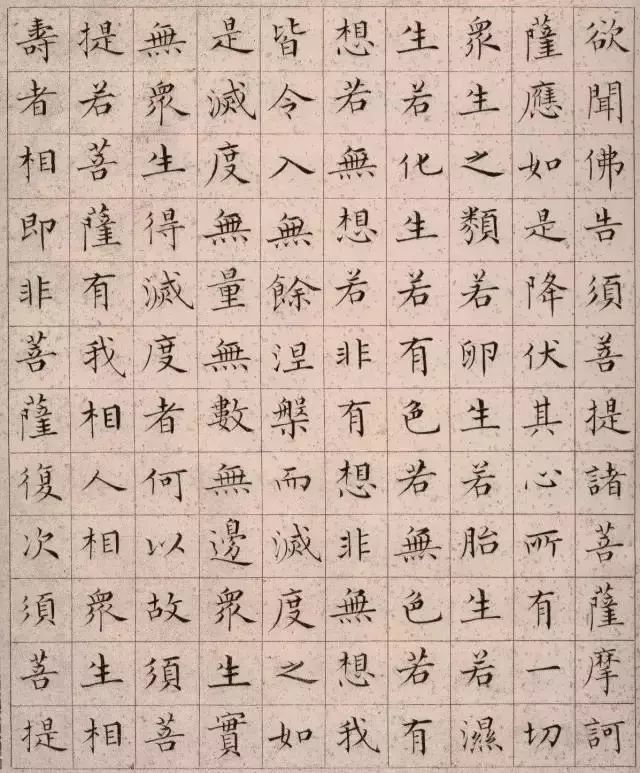 欲聞佛告須菩提諸菩薩摩訶
薩應如是降伏其心所有一切
眾生之類若卵生若胎生若濕
生若化生若有色若無色若有
想若無想若非有想非無想我
皆令入無餘涅槃而滅度之如
是滅度無量無數無邊眾生實
無眾生得滅度者何以故須菩
提若菩薩有我相人相眾生相
壽者相即非菩薩復次須菩提